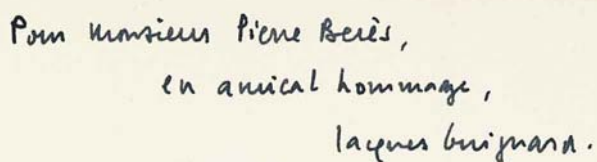 Pour Monsieur Pierre Berès,
en amical hommage,
Jacques Guignard.